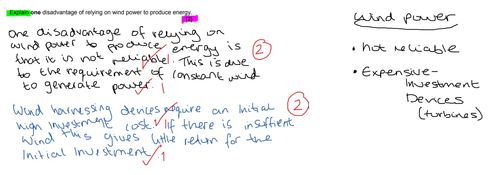 Explain one disadvantage of relying on wind power to produce energy.
(2)
one disadvantage of relying on
wind power to produce energy is
that it is not reliable. This is due
to the requirement of constant wind
to generate power. 1
2
Wind harnessing devices require an initial
high investment cost. If there is insufficient
wind this gives little return for the
initial investment. 1
2
Wind power
• Not reliable
• Expensive-
Investment
Devices
(turbines)